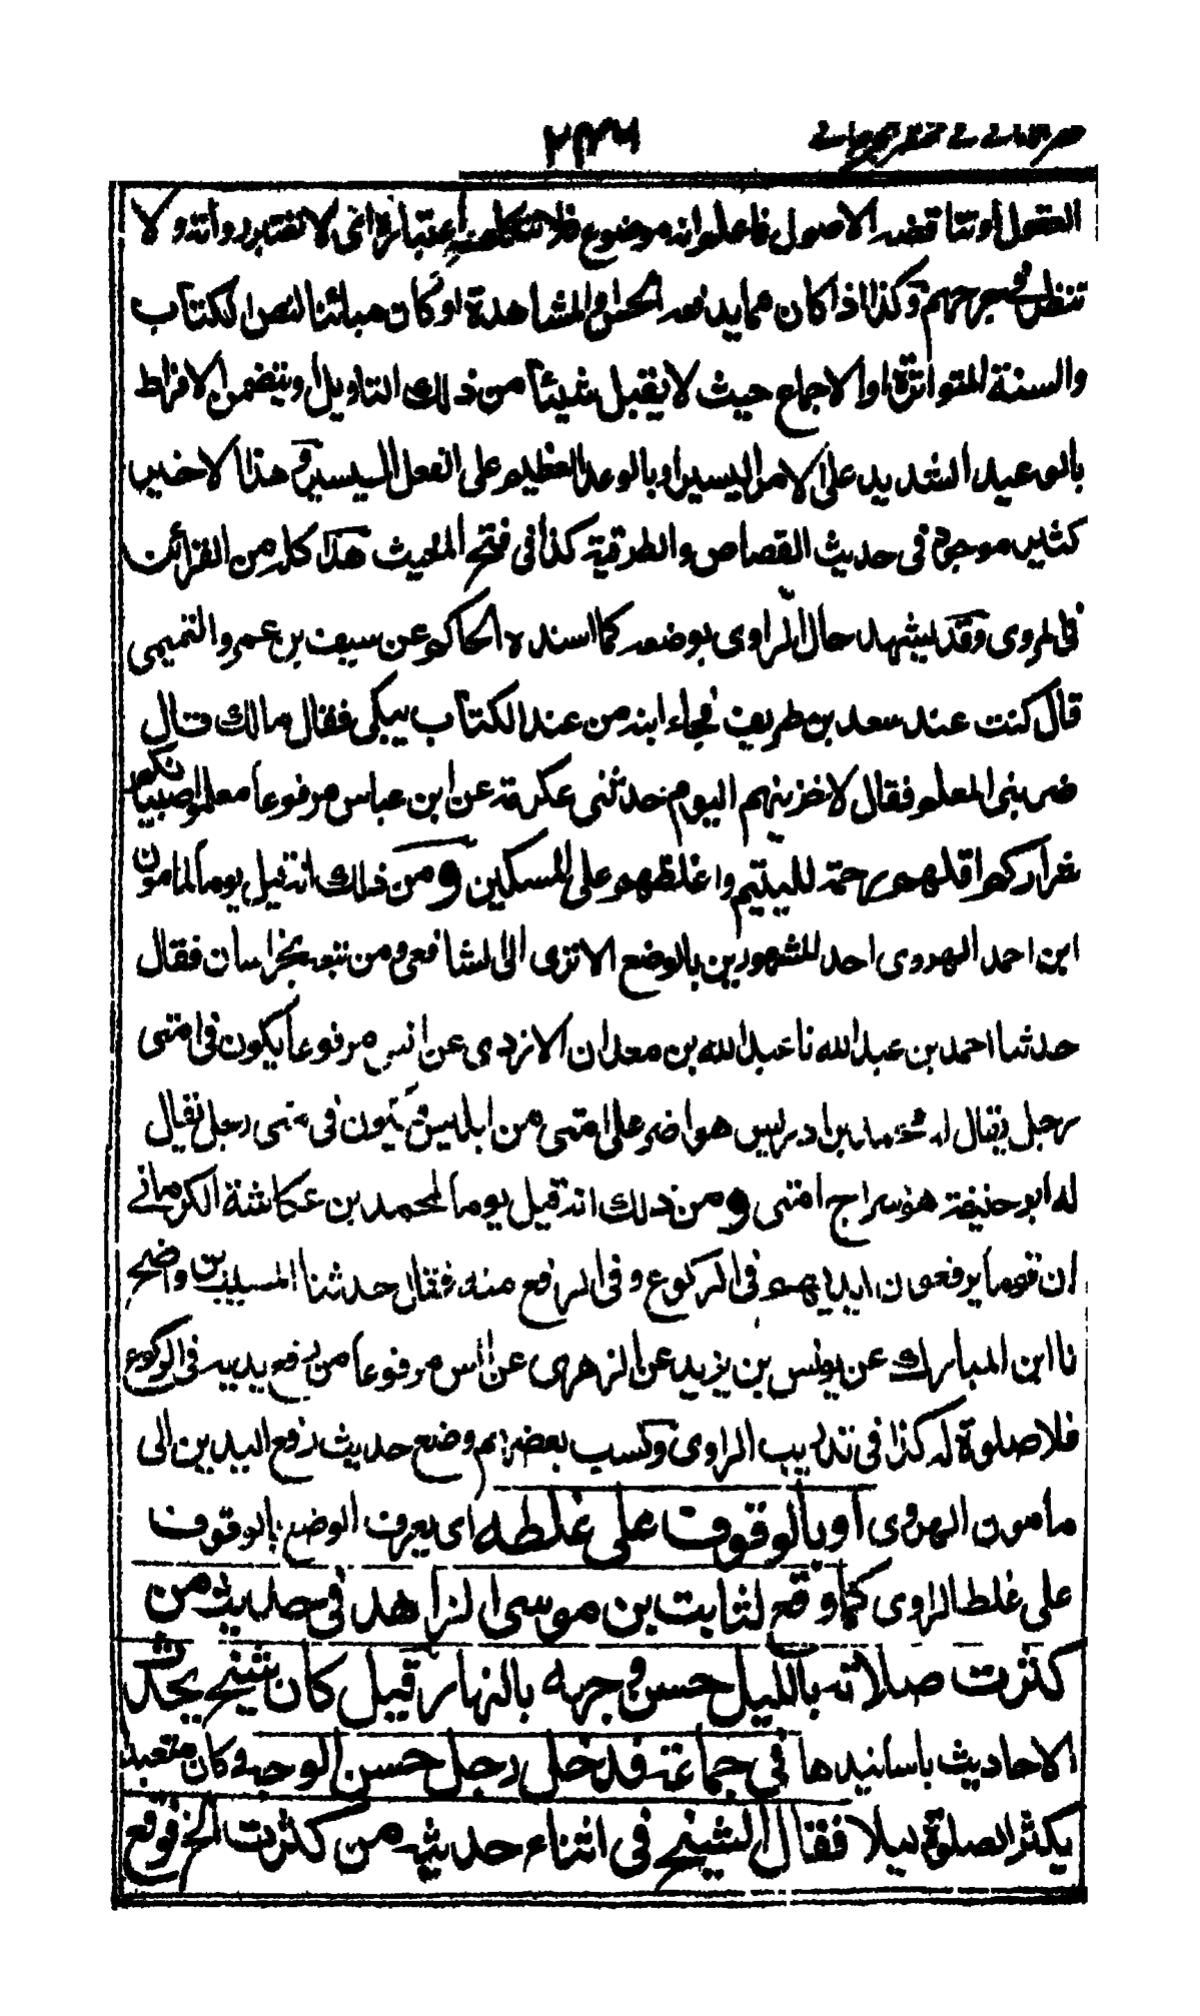 ٢٣٦
العقول أو تناقضه الاصول فاعلم انه موضوع فلا تتكلف اعتباره اى لا تعتبر رواته ولا
تنظر فى جرحهم وكذا اذا كان مما يدفعه الحس والمشاهدة او كان مباينا لنص الكتاب
والسنة المتواترة او الاجماع حيث لا يقبل شيئا من ذلك التاويل او يتضمن الافراط
بالوعيد الشديد على الامر اليسير او بالوعد العظيم على الفعل اليسير وهذا الاخير
كثير موجود فى حديث القصاص والطرقية كذا فى فتح المغيث هذا كله من القرائن
فى المروى وقد يشهد حال الراوى بوضعه كما اسنده الحاكم عن سيف بن عمرو التميمى
قال كنت عند سعد بن طريف فجاء ابنه من عند الكتاب يبكى فقال مالك قال
ضربنى المعلم فقال لاخزينهم اليوم حدثنى عكرمة عن ابن عباس مرفوعا معلموا صبيانكم
شراركم اقلهم رحمة لليتيم واغلظهم على المسكين ومن ذلك انه قيل يوما لمامون
ابن احمد الهروى احد المشهورين بالوضع الا ترى الى الشافعى ومن تبعه بخراسان فقال
حدثنا احمد بن عبد الله نا عبد الله بن معدان الازدى عن انس مرفوعا يكون فى امتى
رجل يقال له محمد بن ادريس هو اضر على امتى من ابليس ويكون فى امتى رجل يقال
له ابو حنيفة هو سراج امتى ومن ذلك انه قيل يوما لمحمد بن عكاشة الكرمانى
ان قوما يرفعون ايديهم فى الركوع وفى الرفع منه فقال حدثنا المسيب بن واضح
نا ابن المبارك عن يونس بن يزيد عن الزهرى عن انس مرفوعا من رفع يديه فى الركوع
فلا صلوة له كذا فى تدريب الراوى ونسب بعضهم وضع حديث رفع اليدين الى
مامون الهروى او بالوقوف على غلطه اى يعرف الوضع بالوقوف
على غلط الراوى كما وقع لثابت بن موسى الزاهد فى حديث من
كثرت صلاته بالليل حسن وجهه بالنهار قيل كان شيخ يحدث
الاحاديث باسانيدها فى جماعة فدخل رجل حسن الوجه وكان متعبدا
يكثر الصلوة ليلا فقال الشيخ فى اثناء حديثه من كثرت الخ فوقع